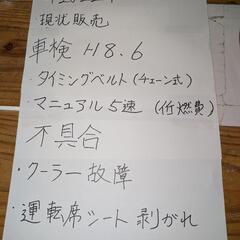 現状販売
車検 H8.6
・タイミングベルト(チェーン式)
・マニュアル5速(低燃費)
不具合
・クーラー故障
・運転席シート剥がれ